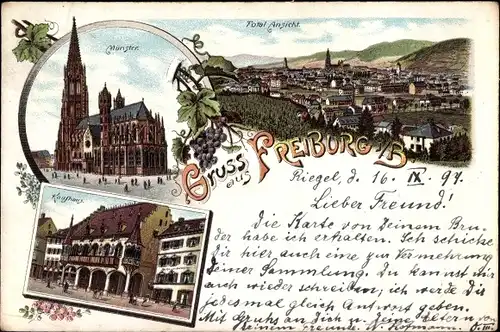 Münster.
Total Ansicht.
Gruss aus FREIBURG i/B
Kaufhaus.
Riegel, d. 16. IX. 97.
Lieber Freund!
Die Karte von Deinem Bru-
der habe ich erhalten. Ich schicke
dir hier auch eine zur Vermehrung
Deiner Sammlung. Du kannst mir
auch wieder schreiben; ich werde Dir
jedesmal gleich Antwort geben.
Mit Gruss an Dich u. Deine Eltern von
Deinem Freunde